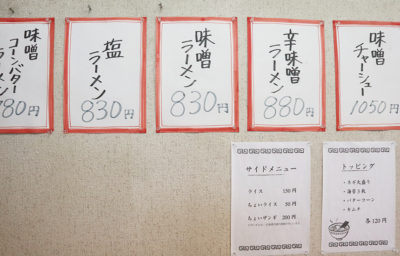 味噌
コーンバター
ラーメン
780円
塩
ラーメン
830円
味噌
ラーメン
830円
辛味噌
ラーメン
880円
味噌
チャーシュー
1050円
サイドメニュー
ライス 150円
ちょいライス 50円
ちょいザンギ 200円
トッピング
・ネギ大盛り
・海苔5枚
・バターコーン
・キムチ
各120円